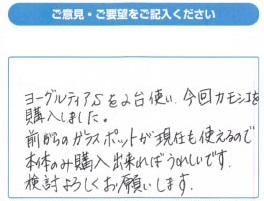 ご意見・ご要望をご記入ください
ヨーグルティアSを2台使い、今回カモシコを
購入しました。
前からのガラスポットが現在も使えるので
本体のみ購入出来ればうれしいです。
検討よろしくお願いします。